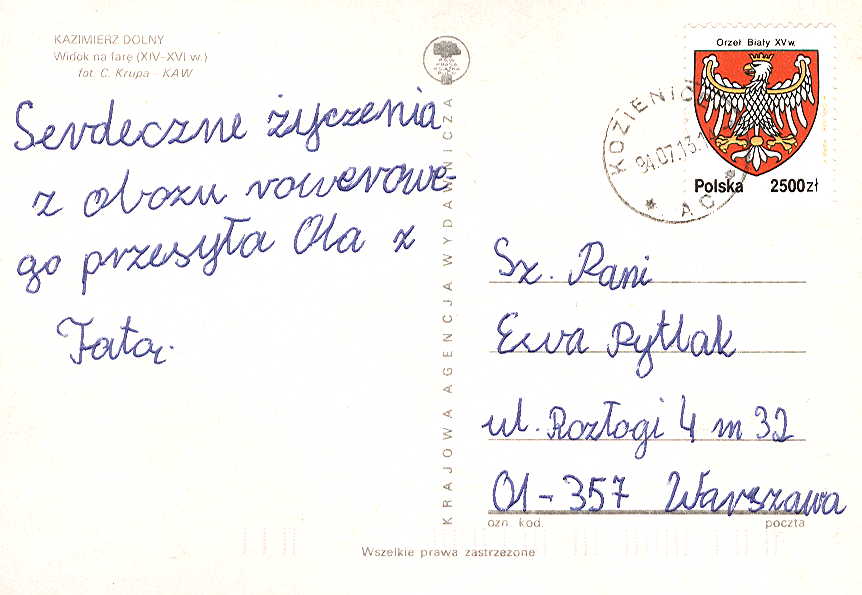 KAZIMIERZ DOLNY
Widok na farę (XIV–XVI w.)
fot. C. Krupa – KAW
Serdeczne życzenia
z obozu rowerowe-
go przesyła Ola z
Tatą.
KRAJOWA AGENCJA WYDAWNICZA
Orzeł Biały XV w.
Polska 2500zł
KOZIENIC
94.07.13
* A C *
Sz. Pani
Ewa Pytlak
ul. Rozłogi 4 m 32
01-357 Warszawa
ozn. kod. poczta
Wszelkie prawa zastrzeżone